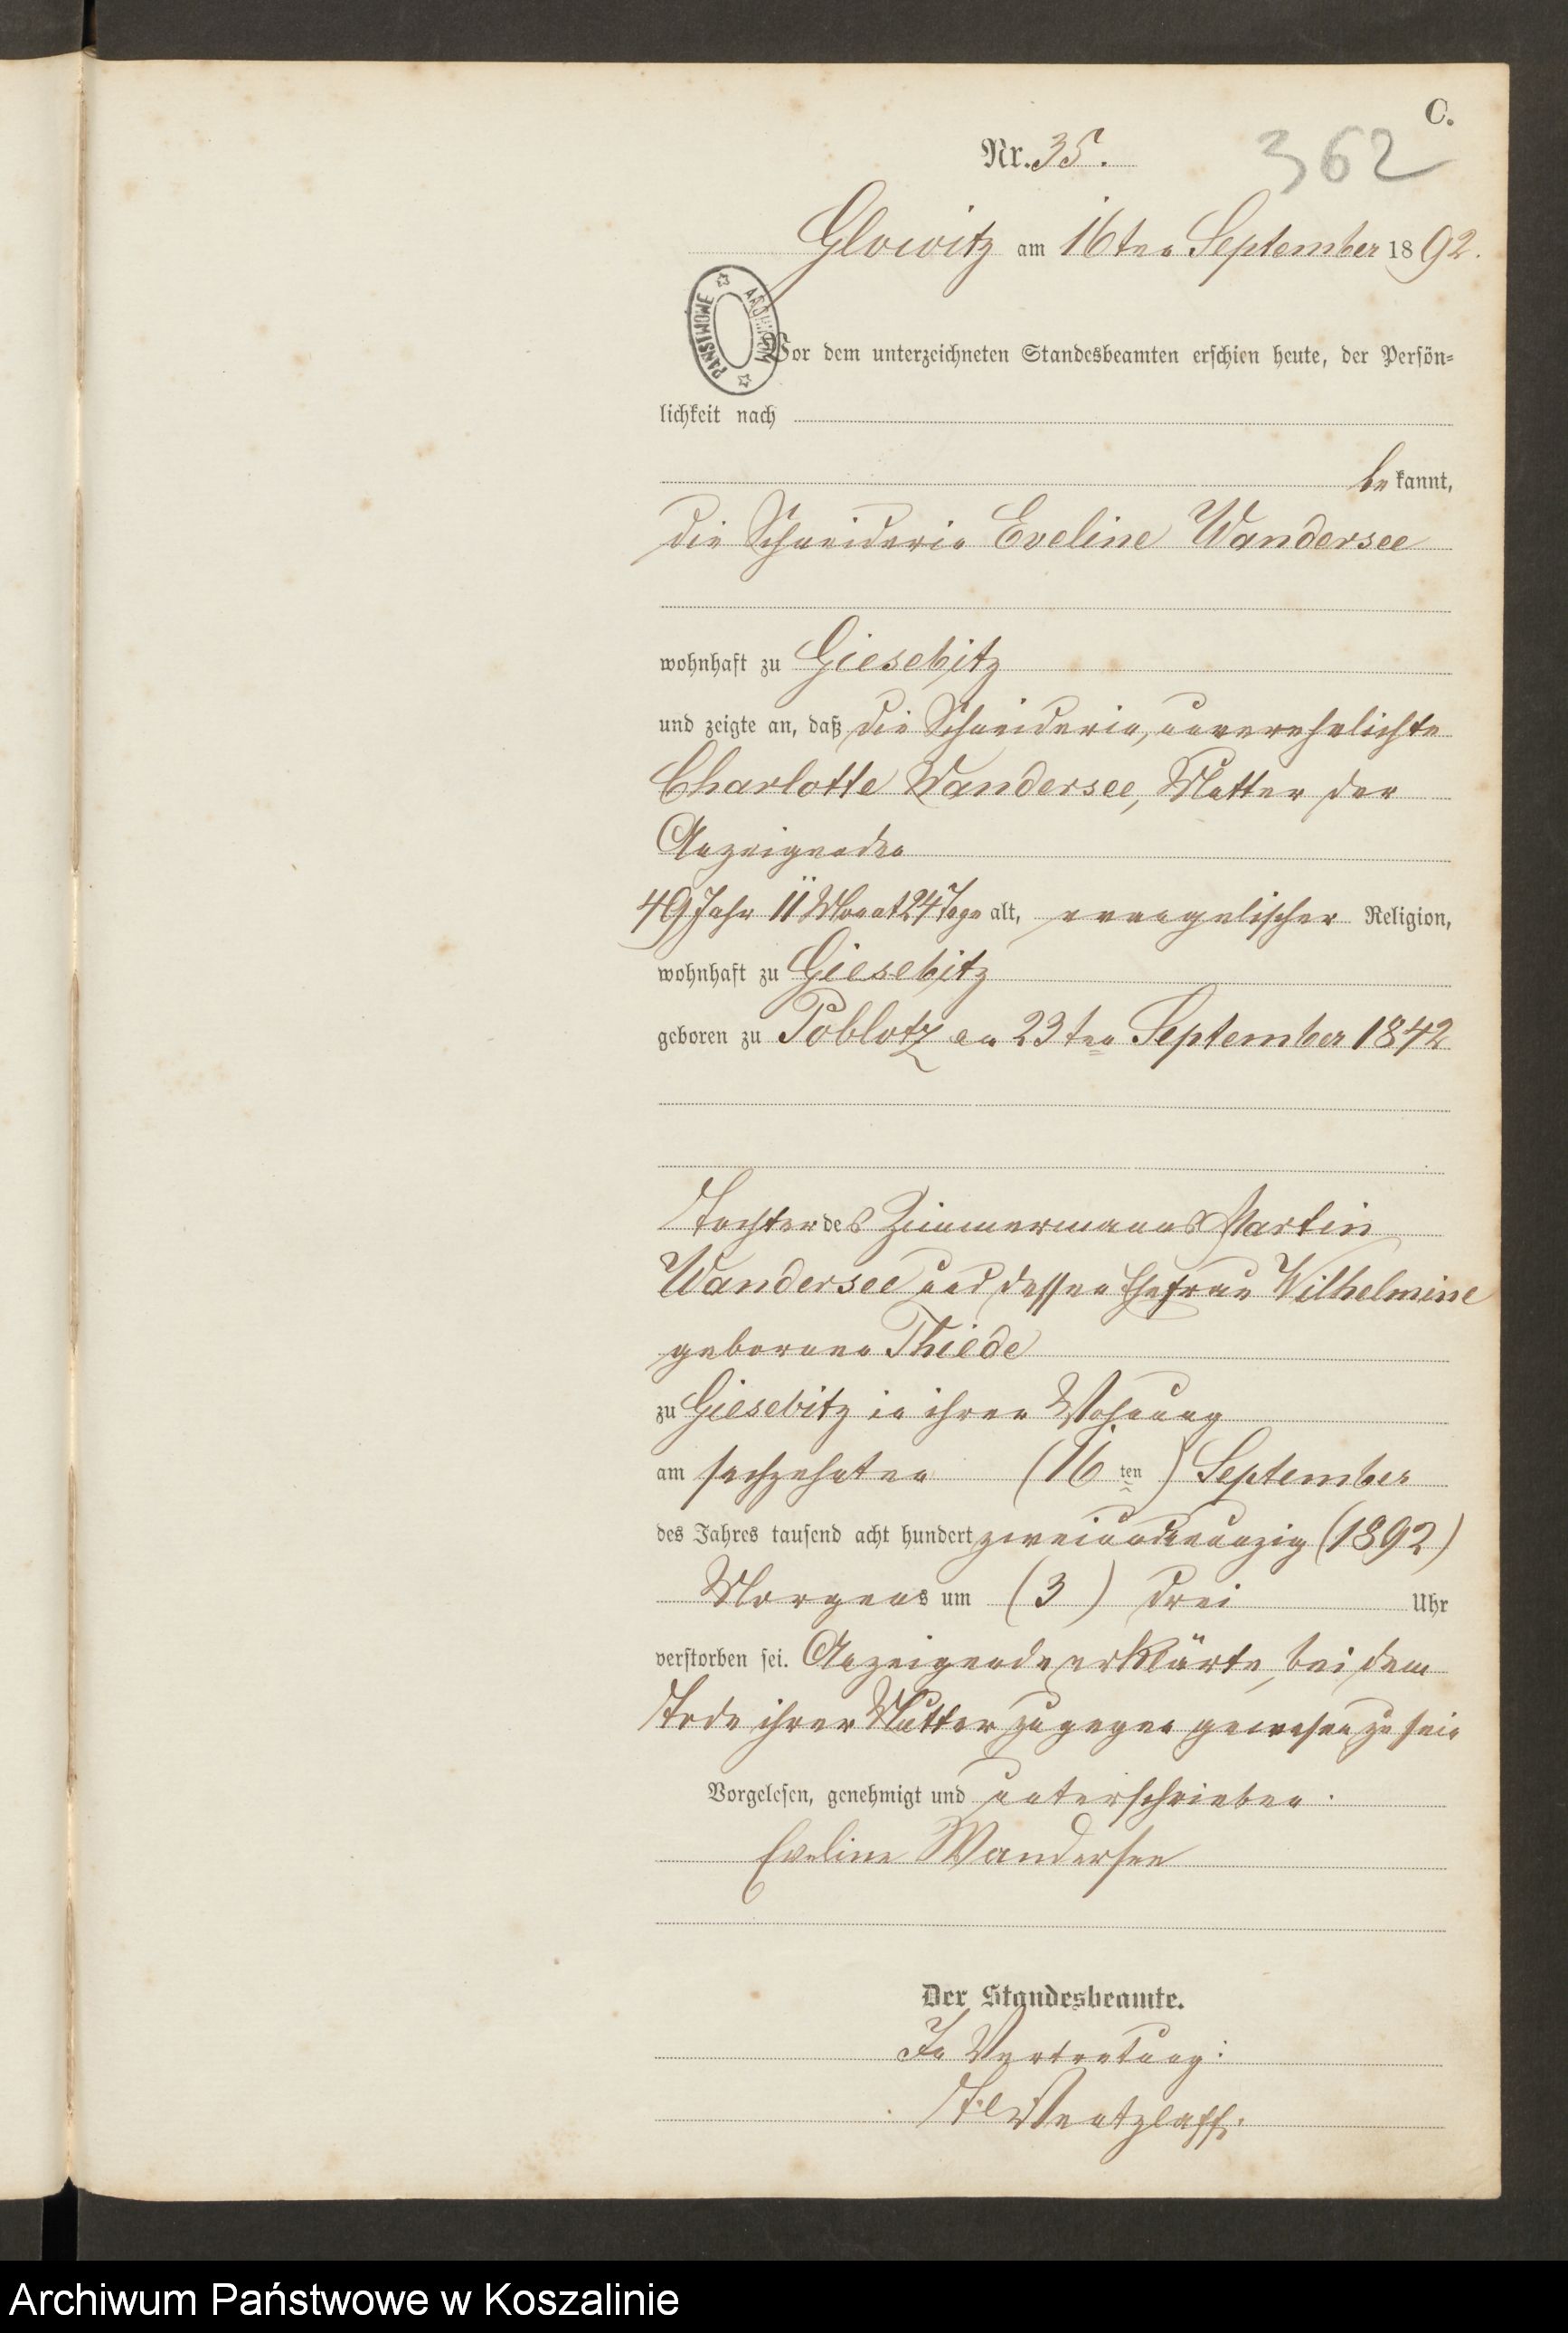 C.
Nr. 35.
362
Glowitz am 16ten September 1892.
ARCHIWUM PAŃSTWOWE
Vor dem unterzeichneten Standesbeamten erschien heute, der Persön=
lichkeit nach
bekannt,
die Schneiderin Eveline Wandersee
wohnhaft zu Giesebitz
und zeigte an, daß die Schneiderin, unverehelichte
Charlotte Wandersee, Mutter der
Anzeigenden
49 Jahr 11 Monat 24 Tage alt, evangelischer Religion,
wohnhaft zu Giesebitz
geboren zu Poblotz am 23ten September 1842
Tochter des Zimmermanns Martin
Wandersee und dessen Ehefrau Wilhelmine
geborenen Thiede
zu Giesebitz in ihrer Wohnung
am sechzehnten (16ten) September
des Jahres tausend acht hundert zweiundneunzig (1892)
Morgens um (3) drei Uhr
verstorben sei. Anzeigende erklärte, bei dem
Tode ihrer Mutter zugegen gewesen zu sein
Vorgelesen, genehmigt und unterschrieben.
Eveline Wandersee
Der Standesbeamte.
In Vertretung:
Wentzlaff.
Archiwum Państwowe w Koszalinie